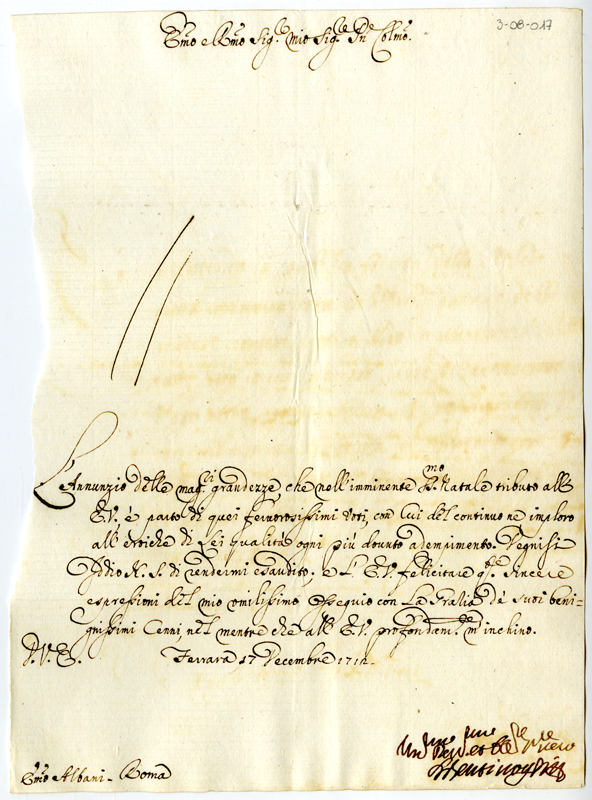 3-08-017
Em̃o e Rm̃o Sig.re mio Sig.re Pñe Colm̃o.
L'Annunzio delle mag.ri grandezze che nell'imminente S.mo Natale tributo all'
E.V. è parto di quei fervorosissimi voti, con cui del continuo ne imploro
all' eroiche di Lei qualità ogni più dovuto adempimento. Degnisi
Iddio N. S. di rendermi esaudito, e L' E.V. felicitare q.ste sincere
espressioni del mio umilissimo ossequio con La Grazia de' suoi beni=
gnissimi Cenni nel mentre che all' E.V. profondam.te m'inchino.
D. V. E. Ferrara 17 Decembre 1712.
Um.mo Dev.mo et
Bentivoglio
Em̃o Albani - Roma